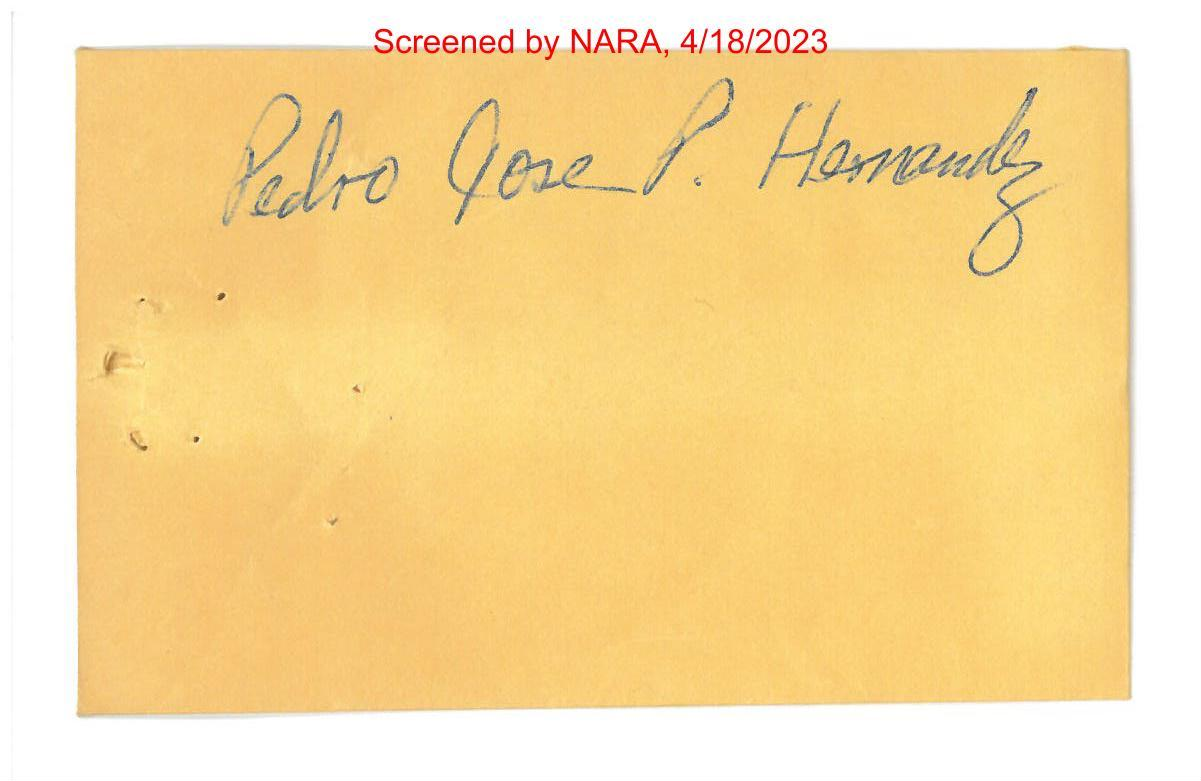 Screened by NARA, 4/18/2023
Pedro Jose P. Hernandez